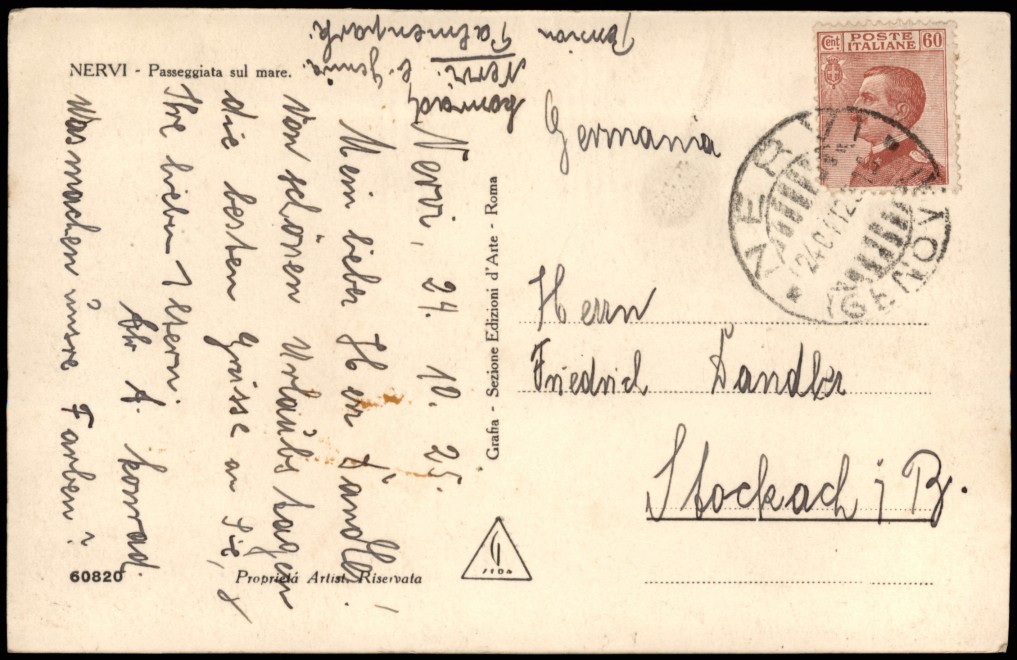 NERVI - Passeggiata sul mare.
Pension
Palmenpark.
Nervi.
b. Genua.
Konrad,
Nervi, 24. 10. 25.
Mein lieber Herr Sandler!
Von schönen Urlaubstagen
die besten Grüsse an Sie,
Ihre lieben Eltern.
Ihr A. Konrad.
Was machen unsre Farben?
Grafia - Sezione Edizioni d'Arte - Roma
60820
Proprietá Artist. Riservata
SEDA
Cent.
POSTE ITALIANE
60
NERVI
GENOVA
Germania
Herrn
Friedrich Sandler
Stockach i/B.